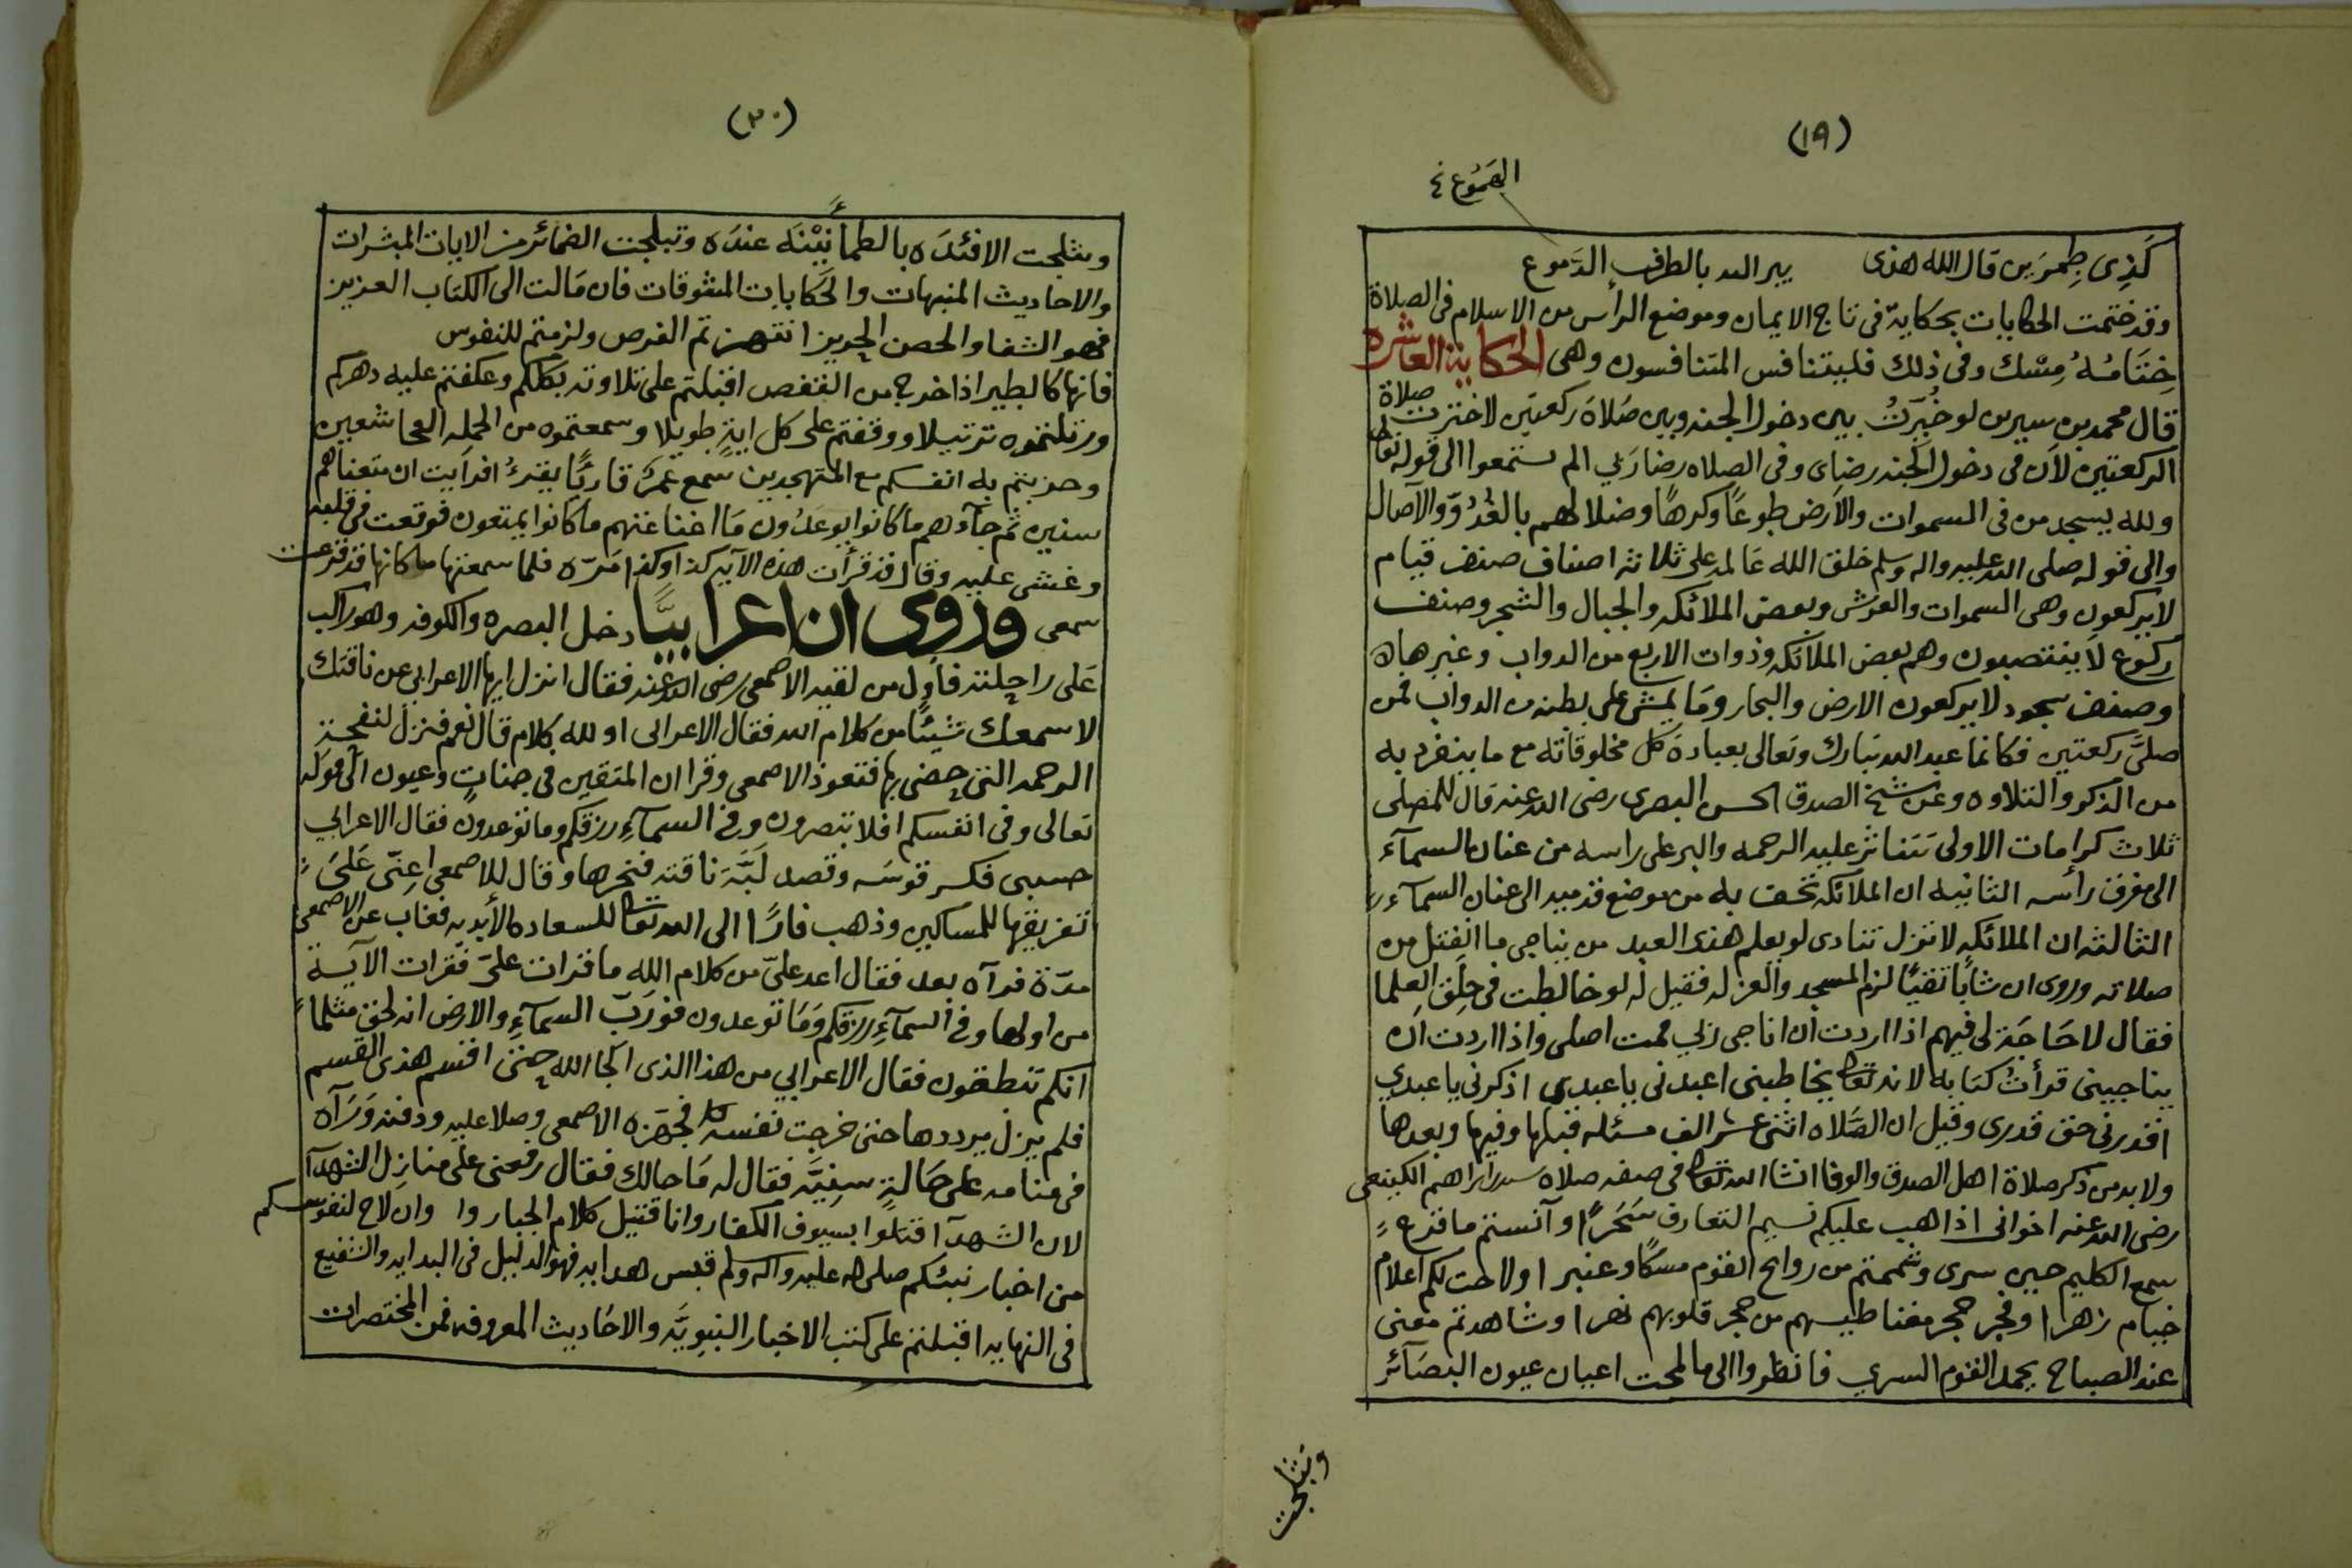 (١٩)
الهموع نخ
كَذِى طِمرَين قال الله هذى يبر الله بالطرف الدَموع
وقد ختمت الحكايات بحكاية فى تاج الايمان وموضع الرأس من الاسلام فى الصلاة
خِتَامُهُ مِسْك وفى ذلك فليتنافس المتنافسون وهى الحكاية العاشره
قال محمد بن سيرين لو خُيّرتُ بين دخول الجنه وبين صَلاة ركعتين لاخترت صلاة
الركعتين لأن فى دخول الجنه رضاى وفى الصلاه رضا رَبي الم تستمعوا الى قوله تعالى
ولله يسجد من فى السموات والأرض طوعًا وكرهًا وضلالهم بالغُدُوّ والآصال
والى قوله صلى الله عليه واله وسلم خلق الله عَالمه على ثلاثة اصناف صنف قيام
لا يركعون وهى السموات والعرش وبعض الملائكه والجبال والشجر وصنف
ركوع لا ينتصبون وهم بعض الملائكه وذوات الاربع من الدواب وغيرها
وصنف سجود لا يركعون الارض والبحار ومَا يمشى على بطنه من الدواب فمن
صلىَّ ركعتين فكانما عبد الله تبارك وتعالى بعبادة كل مخلوقاته مع ما ينفرد به
من الذكر والتلاوه وعن شيخ الصدق الحسن البصرى رضى الله عنه قال للمصلى
ثلاث كرامات الاولى تتناثر عليه الرحمه والبر على راسه من عنان السمآء
الى مفرق رأسه الثانيه ان الملآئكه تحف به من موضع قدميه الى عنان السمآء
الثالثه ان الملائكه لا تزل تنادى لو يعلم هذى العبد من يناجى ما انفتل من
صلاته وروى ان شابًا تقيًا لزم المسجد والعزله فقيل له لو خالطت فى حِلَق العلما
فقال لا حَاجَة لى فيهم اذا اردت ان اناجى رَبي قمت اصلى واذا اردت ان
يناجينى قرأتُ كتابه لانه تعالى يخاطبنى اعبدنى ياعبدي اذكرنى ياعبدي
اقدرنى حق قدرى وقيل ان الصَّلاه اثنى عشر الف مسئله قبلها وفيها وبعدها
ولا بد من ذكر صلاة اهل الصدق والوفا انشا الله تعالى فى صفه صلاه سيد ابراهيم الكينعى
رضى الله عنه اخوانى اذا هب عليكم نسيم التعارف سَحَرًا وآنستم ما قرع
سمع الكليم حين سرى وشممتم من روايح القوم مسكًا وعنبرا ولاحت لكم اعلام
خيام زهرا وفجر حجر مغناطيسهم من حجر قلوبهم نهرا وشاهدتم معنى
عند الصباح يحمد القوم السري فانظروا الى ما لمحت اعيان عيون البصَآئر
وتثلجت
(٢٠)
وتثلجت الافئدَه بالطمأنِيْنَه عندَه وتبلجت الضمائر من الايات المبشرات
والاحاديث المنبهات والحَكايات المشوقات فان مَالت الى الكتاب العزيز
فهو الشفا والحصن الحريز انتهزتم الفرص ولزمتم للنفوس
فانها كالطير اذا خرج من القفص اقبلتم على تلاوته بكلكم وعكفتم عليه دهركم
ورتلتموه ترتيلا ووقفتم على كل ايةٍ طويلا وسمعتموه من الحمله الخاشعين
وحزبتم به انفسكم مع المتهجدين سمع عُمَرُ قاريًا يقرءُ افرايت ان متعناهم
سنين ثم جآءهم ما كانوا يوعَدُون مَا اغنا عنهم ما كانوا يمتعون فوقعت فى قلبه
وغشى عليه وقال قد قرأت هذه الآيه كذا وكذا مَرّه فلما سمعتها ما كانها قد قرعت
سمعى وروى ان اعرابيًّا دخل البصره والكوفه وهو راكب
عَلى راحلته فأول من لقيه الاصمعى رضى الله عنه فقال انزل ايها الاعرابى عن ناقتك
لاسمعك شيئًا من كلام الله فقال الاعرابى او لله كلام قال نعم فنزل لنفحة
الرحمه التى حضى بها فتعوذ الاصمعى وقرا ان المتقين فى جناتٍ وعيون الى قوله
تعالى وفى انفسكم افلا تبصرون وفى السمآءِ رزقكم وما توعدون فقال الاعرابي
حسبى فكسر قوسَه وقصد لَبَّة ناقته فنحرها وقال للاصمعي اعنّى عَلىَ
تفريقها للمساكين وذهب فارًا الى الله تعالى للسعاده الأبديه فغاب عن الاصمعى
مدّة فرآه بعد فقال اعد علىّ من كلام الله ما قرات علىّ فقرات الآية
من اولها وفى السمآءِ رزقكم وَمَا توعدون فورَبّ السمآءِ والارض انه لحق مثلما
انكم تنطقون فقال الاعرابي من هذا الذى الجا الله حتى اقسم هذى القسم
فلم يزل يرددها حتى خرجت نفسه فجهَزه الاصمعى وصلا عليه ودفنه وَرَآه
فى منامه على حَالةٍ سنِيَّه فقال له مَا حالك فقال رفعنى على منازل الشهدآ
لان الشهدآ قتلوا بسيوف الكفار وانا قتيل كلام الجبار وا وان لاح لنفوسكم
من اخبار نبيئكم صلى الله عليه واله وسلم قبس هدايه فهو الدليل فى البدايه والشفيع
فى النهايه اقبلتم على كتب الاخبار النبويَّه والاحَاديث المعروفه فمن المختصرات